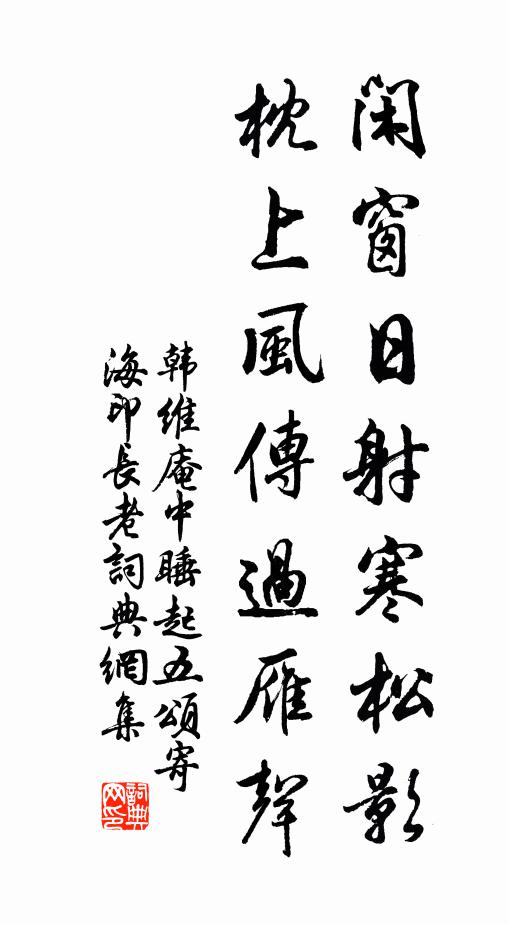 閑窗日射寒松影
枕上風傳過雁聲
韩維庵中睡起五頌寄
海印長老詞典網集
詞典
网印